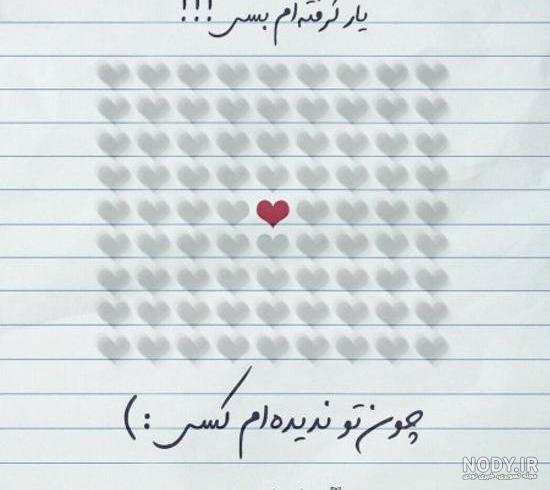 یار گرفته‌ام بسی !!!
چون تو ندیده‌ام کسی :)
NODY.IR